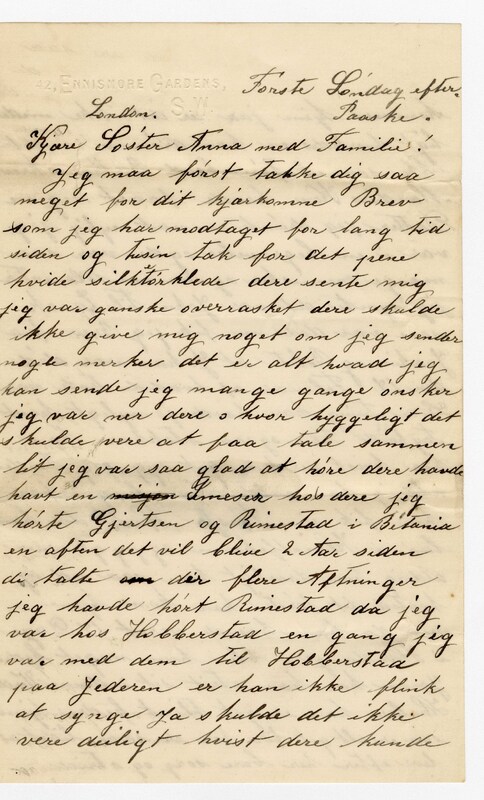 42, ENNISMORE GARDENS,
S.W.
Förste Söndag efter
Paaske.
London.
Kjære Söster Anna med Familie!
Jeg maa först takke dig saa
meget for dit kjærkomne Brev
som jeg har modtaget for lang tid
siden og tusin tak for det pene
hvide silktörklede dere sente mig
jeg var ganske overrasket dere skulde
ikke give mig noget om jeg sender
nogle merker det er alt hvad jeg
kan sende jeg mange gange önsker
jeg var ner dere o hvor hyggeligt det
skulde vere at faa tale sammen
lit jeg var saa glad at höre dere havde
havt en hos dere jeg
hörte Gjertsen og Rimestad i Betania
en aften det vil blive 2 Aar siden
di talte der flere Aftninger
jeg havde hört Rimestad da jeg
var hos Hobberstad en gang jeg
var med dem til Hobberstad
paa Jederen er han ikke flink
at synge Ja skulde det ikke
vere deiligt hvist dere kunde